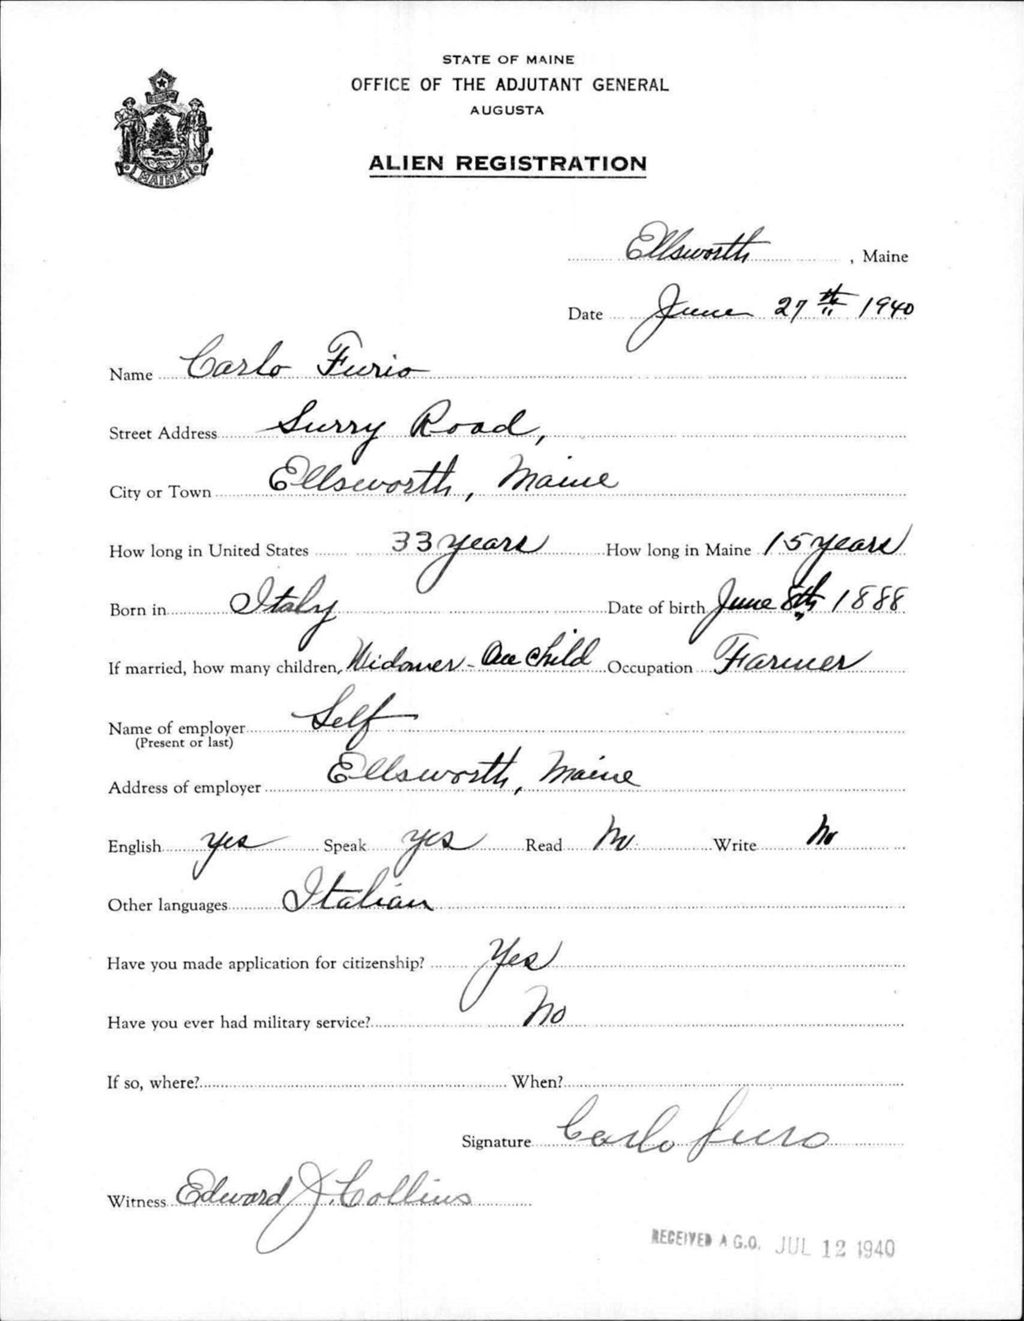 STATE OF MAINE
OFFICE OF THE ADJUTANT GENERAL
AUGUSTA
ALIEN REGISTRATION
MAINE
Ellsworth, Maine
Date June 27th 1940
Name Carlo Furio
Street Address Surry Road,
City or Town Ellsworth, Maine
How long in United States 33 years How long in Maine 15 years
Born in Italy Date of birth June 8th, 1888
If married, how many children, Widower - One Child Occupation Farmer
Name of employer Self
(Present or last)
Address of employer Ellsworth, Maine
English yes Speak yes Read No Write No
Other languages Italian
Have you made application for citizenship? Yes
Have you ever had military service? No
If so, where? When?
Signature Carlo
Witness Edward J. Collins
RECEIVED A.G.O. JUL 12 1940